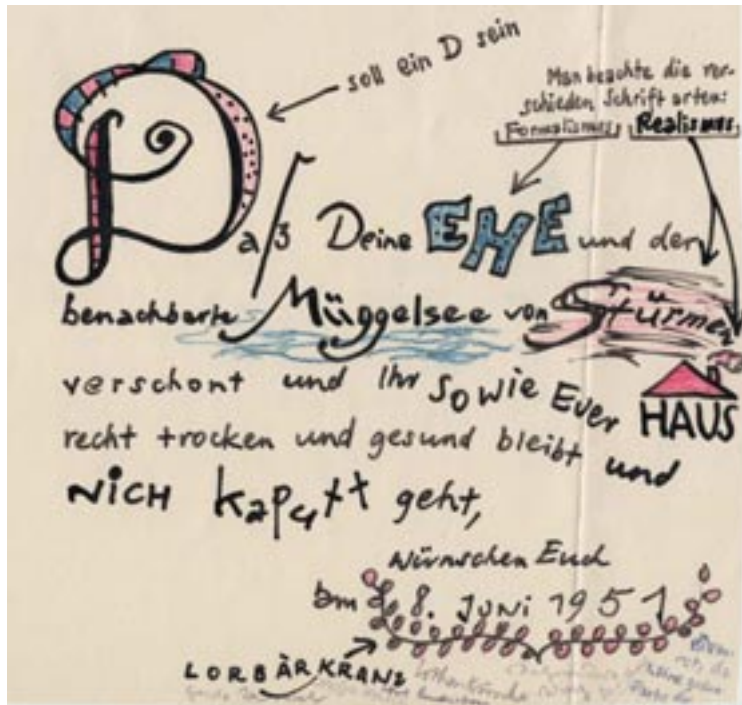 soll ein D sein
Man beachte die ver-
schieden Schriftarten:
Formalismus, Realismus
Daß Deine EHE und der
benachbarte Müggelsee von Stürmen
verschont und Ihr sowie Euer HAUS
recht trocken und gesund bleibt und
NICH kaputt geht,
wünschen Euch
am 8. Juni 1951
LORBÄRKRANZ